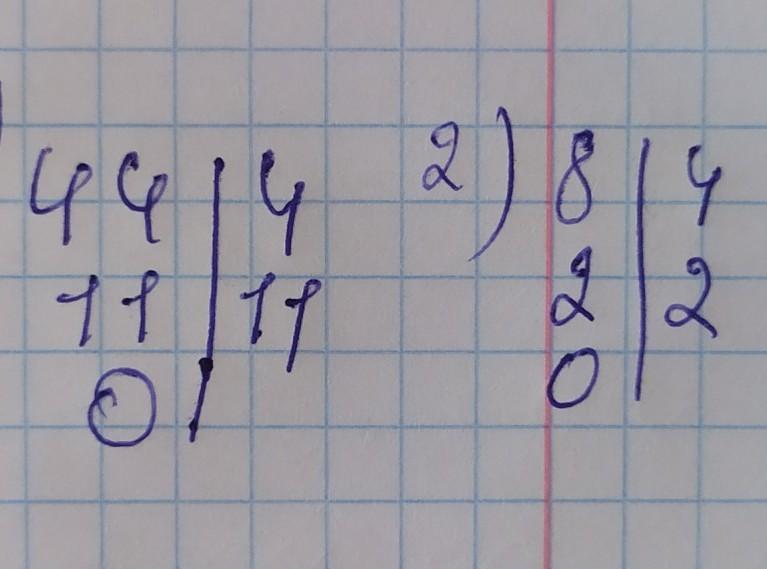 44 | 4
11 | 11
0
2) 8 | 4
2 | 2
0